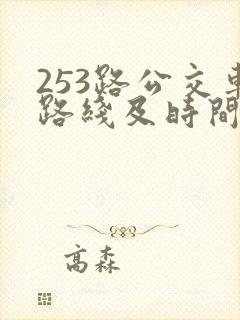 253路公交車
路綫及時間
高森